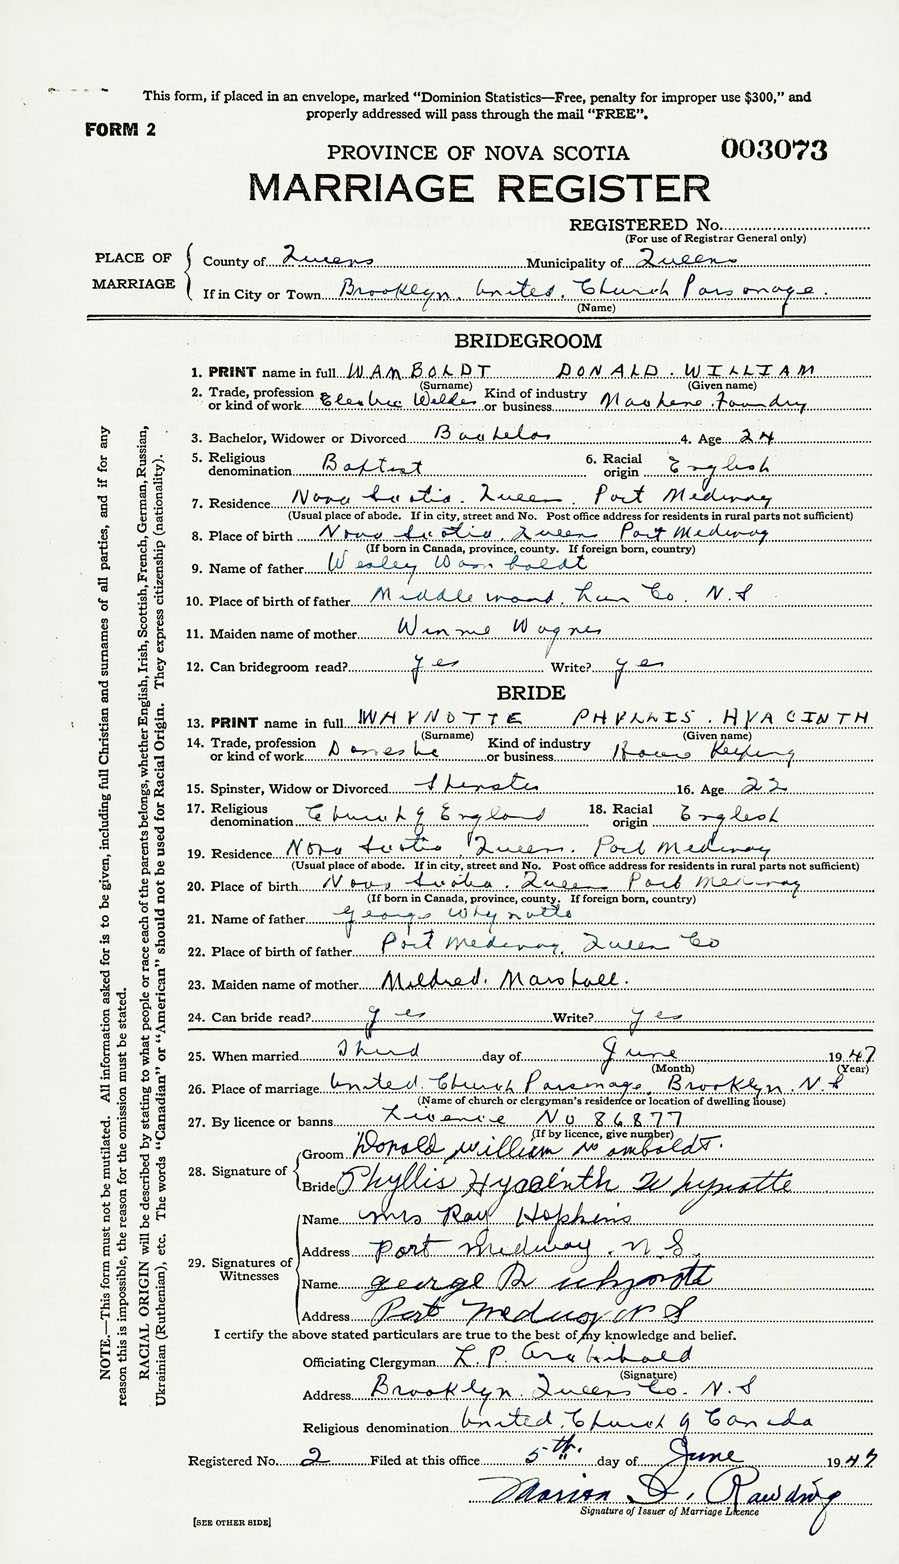 This form, if placed in an envelope, marked “Dominion Statistics—Free, penalty for improper use $300,” and
properly addressed will pass through the mail “FREE”.
FORM 2
003073
PROVINCE OF NOVA SCOTIA
MARRIAGE REGISTER
REGISTERED No.
(For use of Registrar General only)
PLACE OF MARRIAGE
County of Queens Municipality of Queens
If in City or Town Brooklyn. United. Church Parsonage.
(Name)
BRIDEGROOM
1. PRINT name in full WAMBOLDT DONALD. WILLIAM
(Surname) (Given name)
2. Trade, profession or kind of work Electric Welder Kind of industry or business Machine Foundry
3. Bachelor, Widower or Divorced Bachelor 4. Age 24
5. Religious denomination Baptist 6. Racial origin English
7. Residence Nova Scotia. Queens. Port Medway
(Usual place of abode. If in city, street and No. Post office address for residents in rural parts not sufficient)
8. Place of birth Nova Scotia. Queens Port Medway
(If born in Canada, province, county. If foreign born, country)
9. Name of father Wesley Wamboldt
10. Place of birth of father Middlewood. Lun Co. N.S
11. Maiden name of mother Winnie Wagner
12. Can bridegroom read? yes Write? yes
BRIDE
13. PRINT name in full WHYNOTTE PHYLLIS. HYACINTH
(Surname) (Given name)
14. Trade, profession or kind of work Domestic Kind of industry or business House Keeping
15. Spinster, Widow or Divorced Spinster 16. Age 22
17. Religious denomination Church of England 18. Racial origin English
19. Residence Nova Scotia, Queens. Port Medway
(Usual place of abode. If in city, street and No. Post office address for residents in rural parts not sufficient)
20. Place of birth Nova Scotia. Queens Port Medway
(If born in Canada, province, county. If foreign born, country)
21. Name of father George Whynotte
22. Place of birth of father Port Medway, Queens Co
23. Maiden name of mother Mildred. Marshall.
24. Can bride read? yes Write? yes
25. When married Third day of June 1947
(Month) (Year)
26. Place of marriage United. Church Parsonage, Brooklyn. N.S
(Name of church or clergyman’s residence or location of dwelling house)
27. By licence or banns Licence No 86877
(If by licence, give number)
28. Signature of
Groom Donald William Wamboldt.
Bride Phyllis Hyacinth Whynotte
29. Signatures of Witnesses
Name Mrs Ray Hopkins
Address Port Medway. N.S.
Name George R Whynotte
Address Port Medway N S
I certify the above stated particulars are true to the best of my knowledge and belief.
Officiating Clergyman L. P. Archibald
(Signature)
Address Brooklyn. Queens Co. N.S
Religious denomination United. Church of Canada
Registered No. 2 Filed at this office 5th. day of June 1947
Marion D. Rawding
Signature of Issuer of Marriage Licence
[SEE OTHER SIDE]
NOTE.—This form must not be mutilated. All information asked for is to be given, including full Christian and surnames of all parties, and if for any
reason this is impossible, the reason for the omission must be stated.
RACIAL ORIGIN will be described by stating to what people or race each of the parents belongs, whether English, Irish, Scottish, French, German, Russian,
Ukrainian (Ruthenian), etc. The words “Canadian” or “American” should not be used for Racial Origin. They express citizenship (nationality).